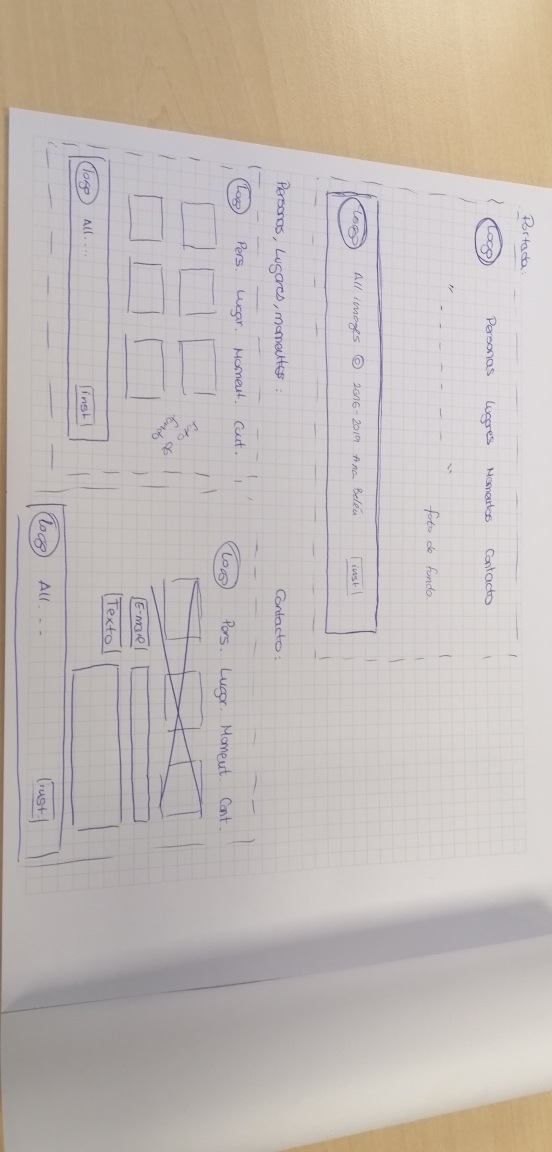 Portada:
Logo Personas Lugares Momentos Contacto
" - - - - - - - "
foto de fondo.
Logo All images © 2016-2019 Ana Belén inst
Personas, Lugares, momentos:
Logo Pers. Lugar. Moment. Cont.
foto de
fondo
logo All.... inst
Contacto:
Logo Pers. Lugar. Moment. Cont.
E-mail
Texto
Logo All. - - inst.